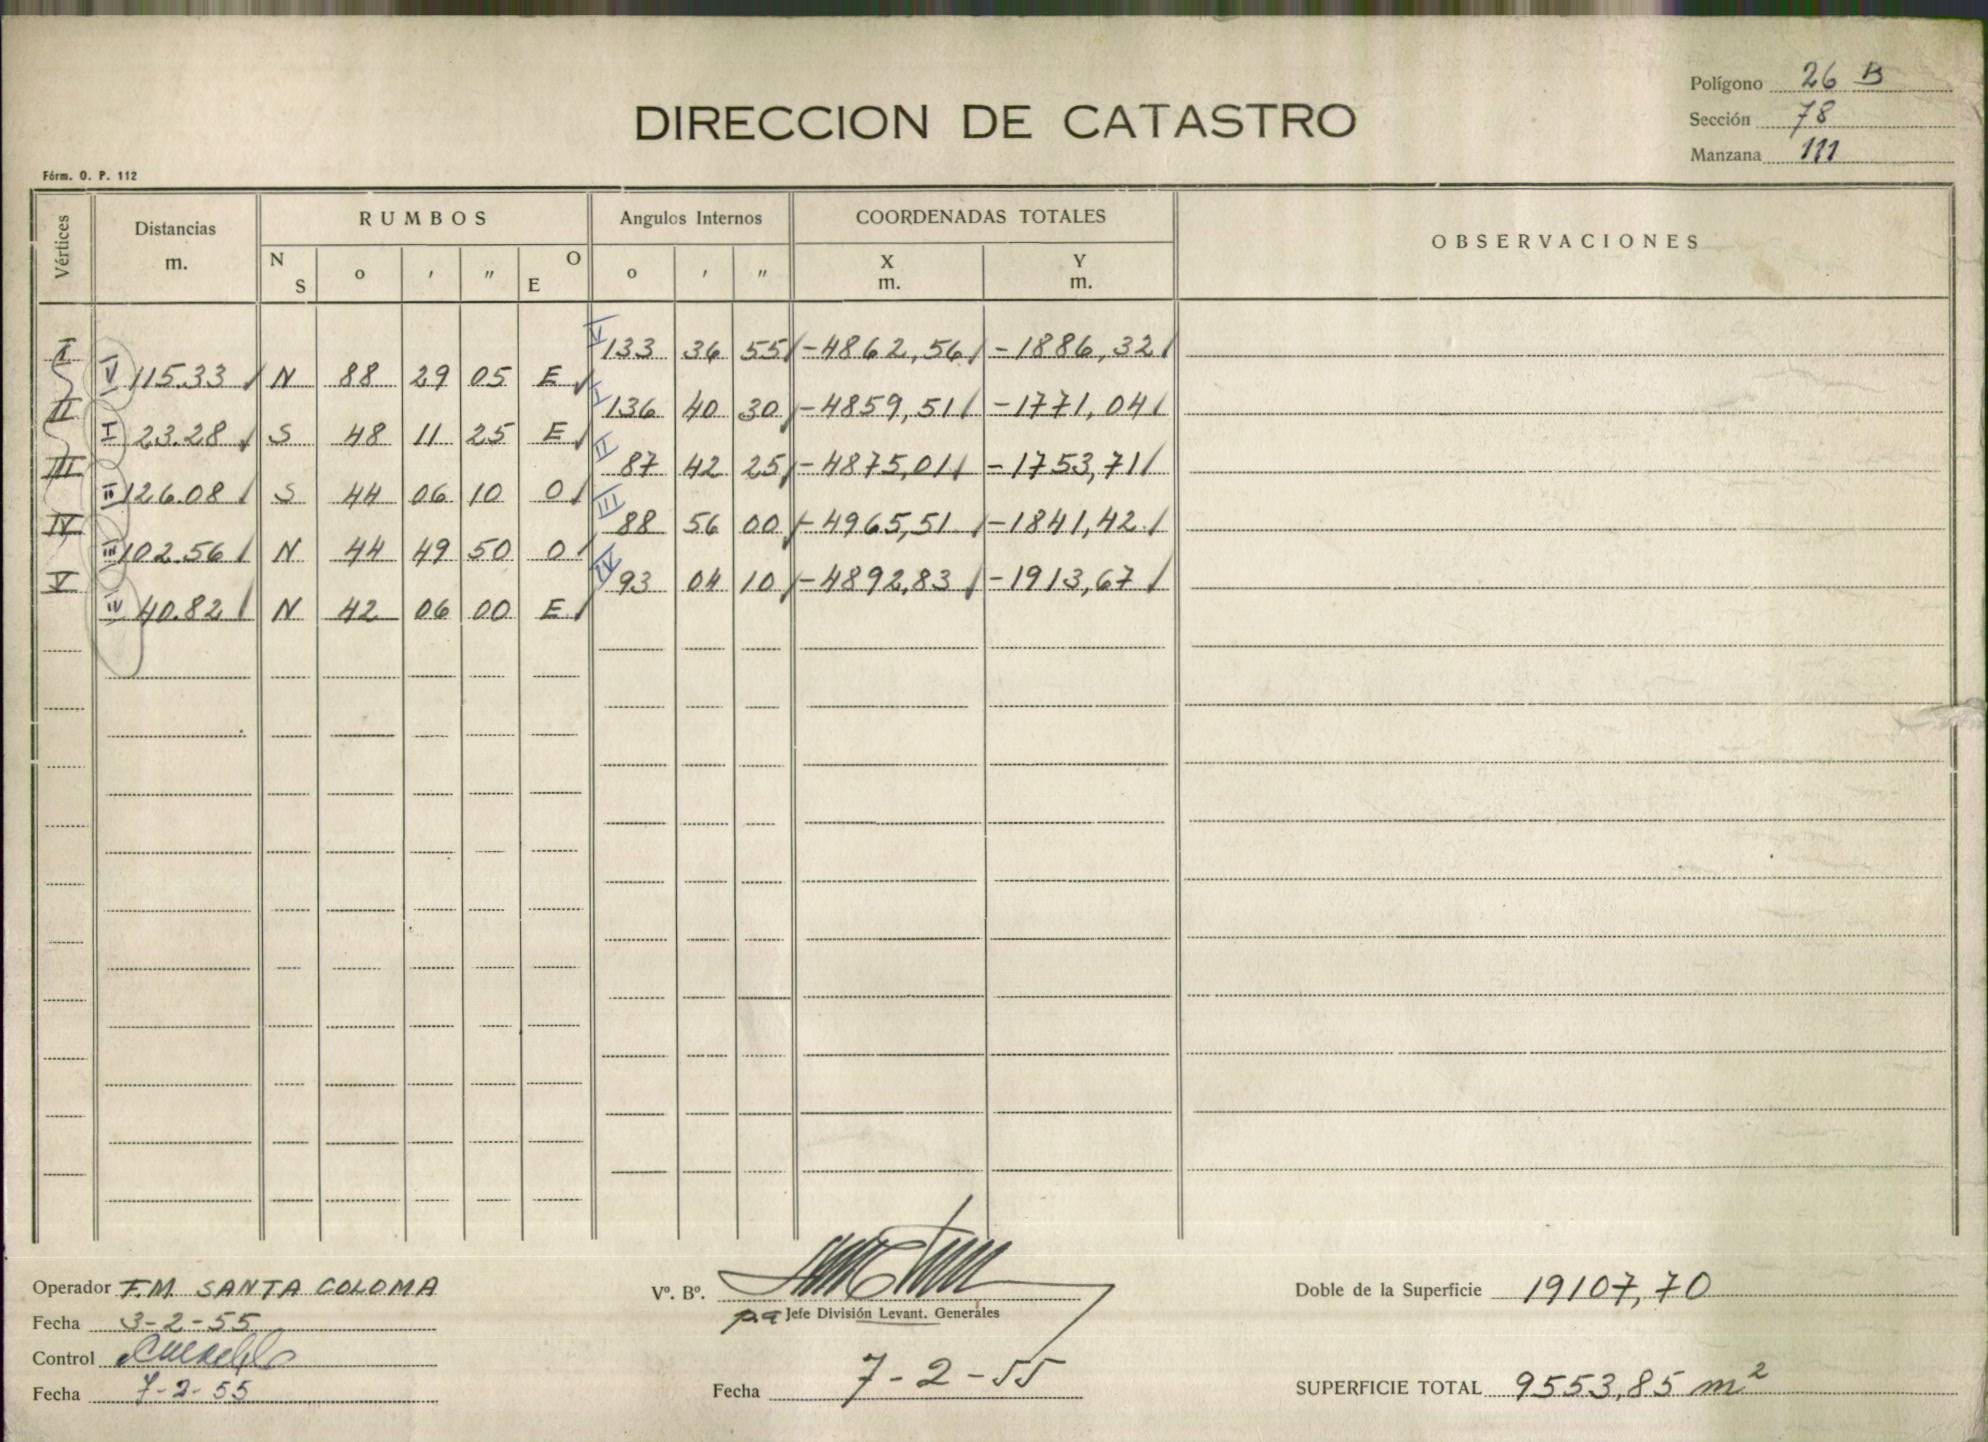 Polígono 26 B
DIRECCION DE CATASTRO
Sección 78
Manzana 111
Fórm. O. P. 112
Vértices Distancias m. RUMBOS N S o ' " O E Angulos Internos o ' " COORDENADAS TOTALES X m. Y m. OBSERVACIONES
I V 133 36 55 -4862,56 -1886,32
V 115.33 N 88 29 05 E
II I 136 40 30 -4859,51 -1771,04
I 23.28 S 48 11 25 E
III II 87 42 25 -4875,01 -1753,71
II 126.08 S 44 06 10 O
IV III 88 56 00 -4965,51 -1841,42
III 102.56 N 44 49 50 O
V IV 93 04 10 -4892,83 -1913,67
IV 40.82 N 42 06 00 E
Operador F.M. SANTA COLOMA
Vº. Bº.
Doble de la Superficie 19107,70
p.a Jefe División Levant. Generales
Fecha 3-2-55
Control
Fecha 7-2-55
Fecha 7-2-55
SUPERFICIE TOTAL 9553,85 m²